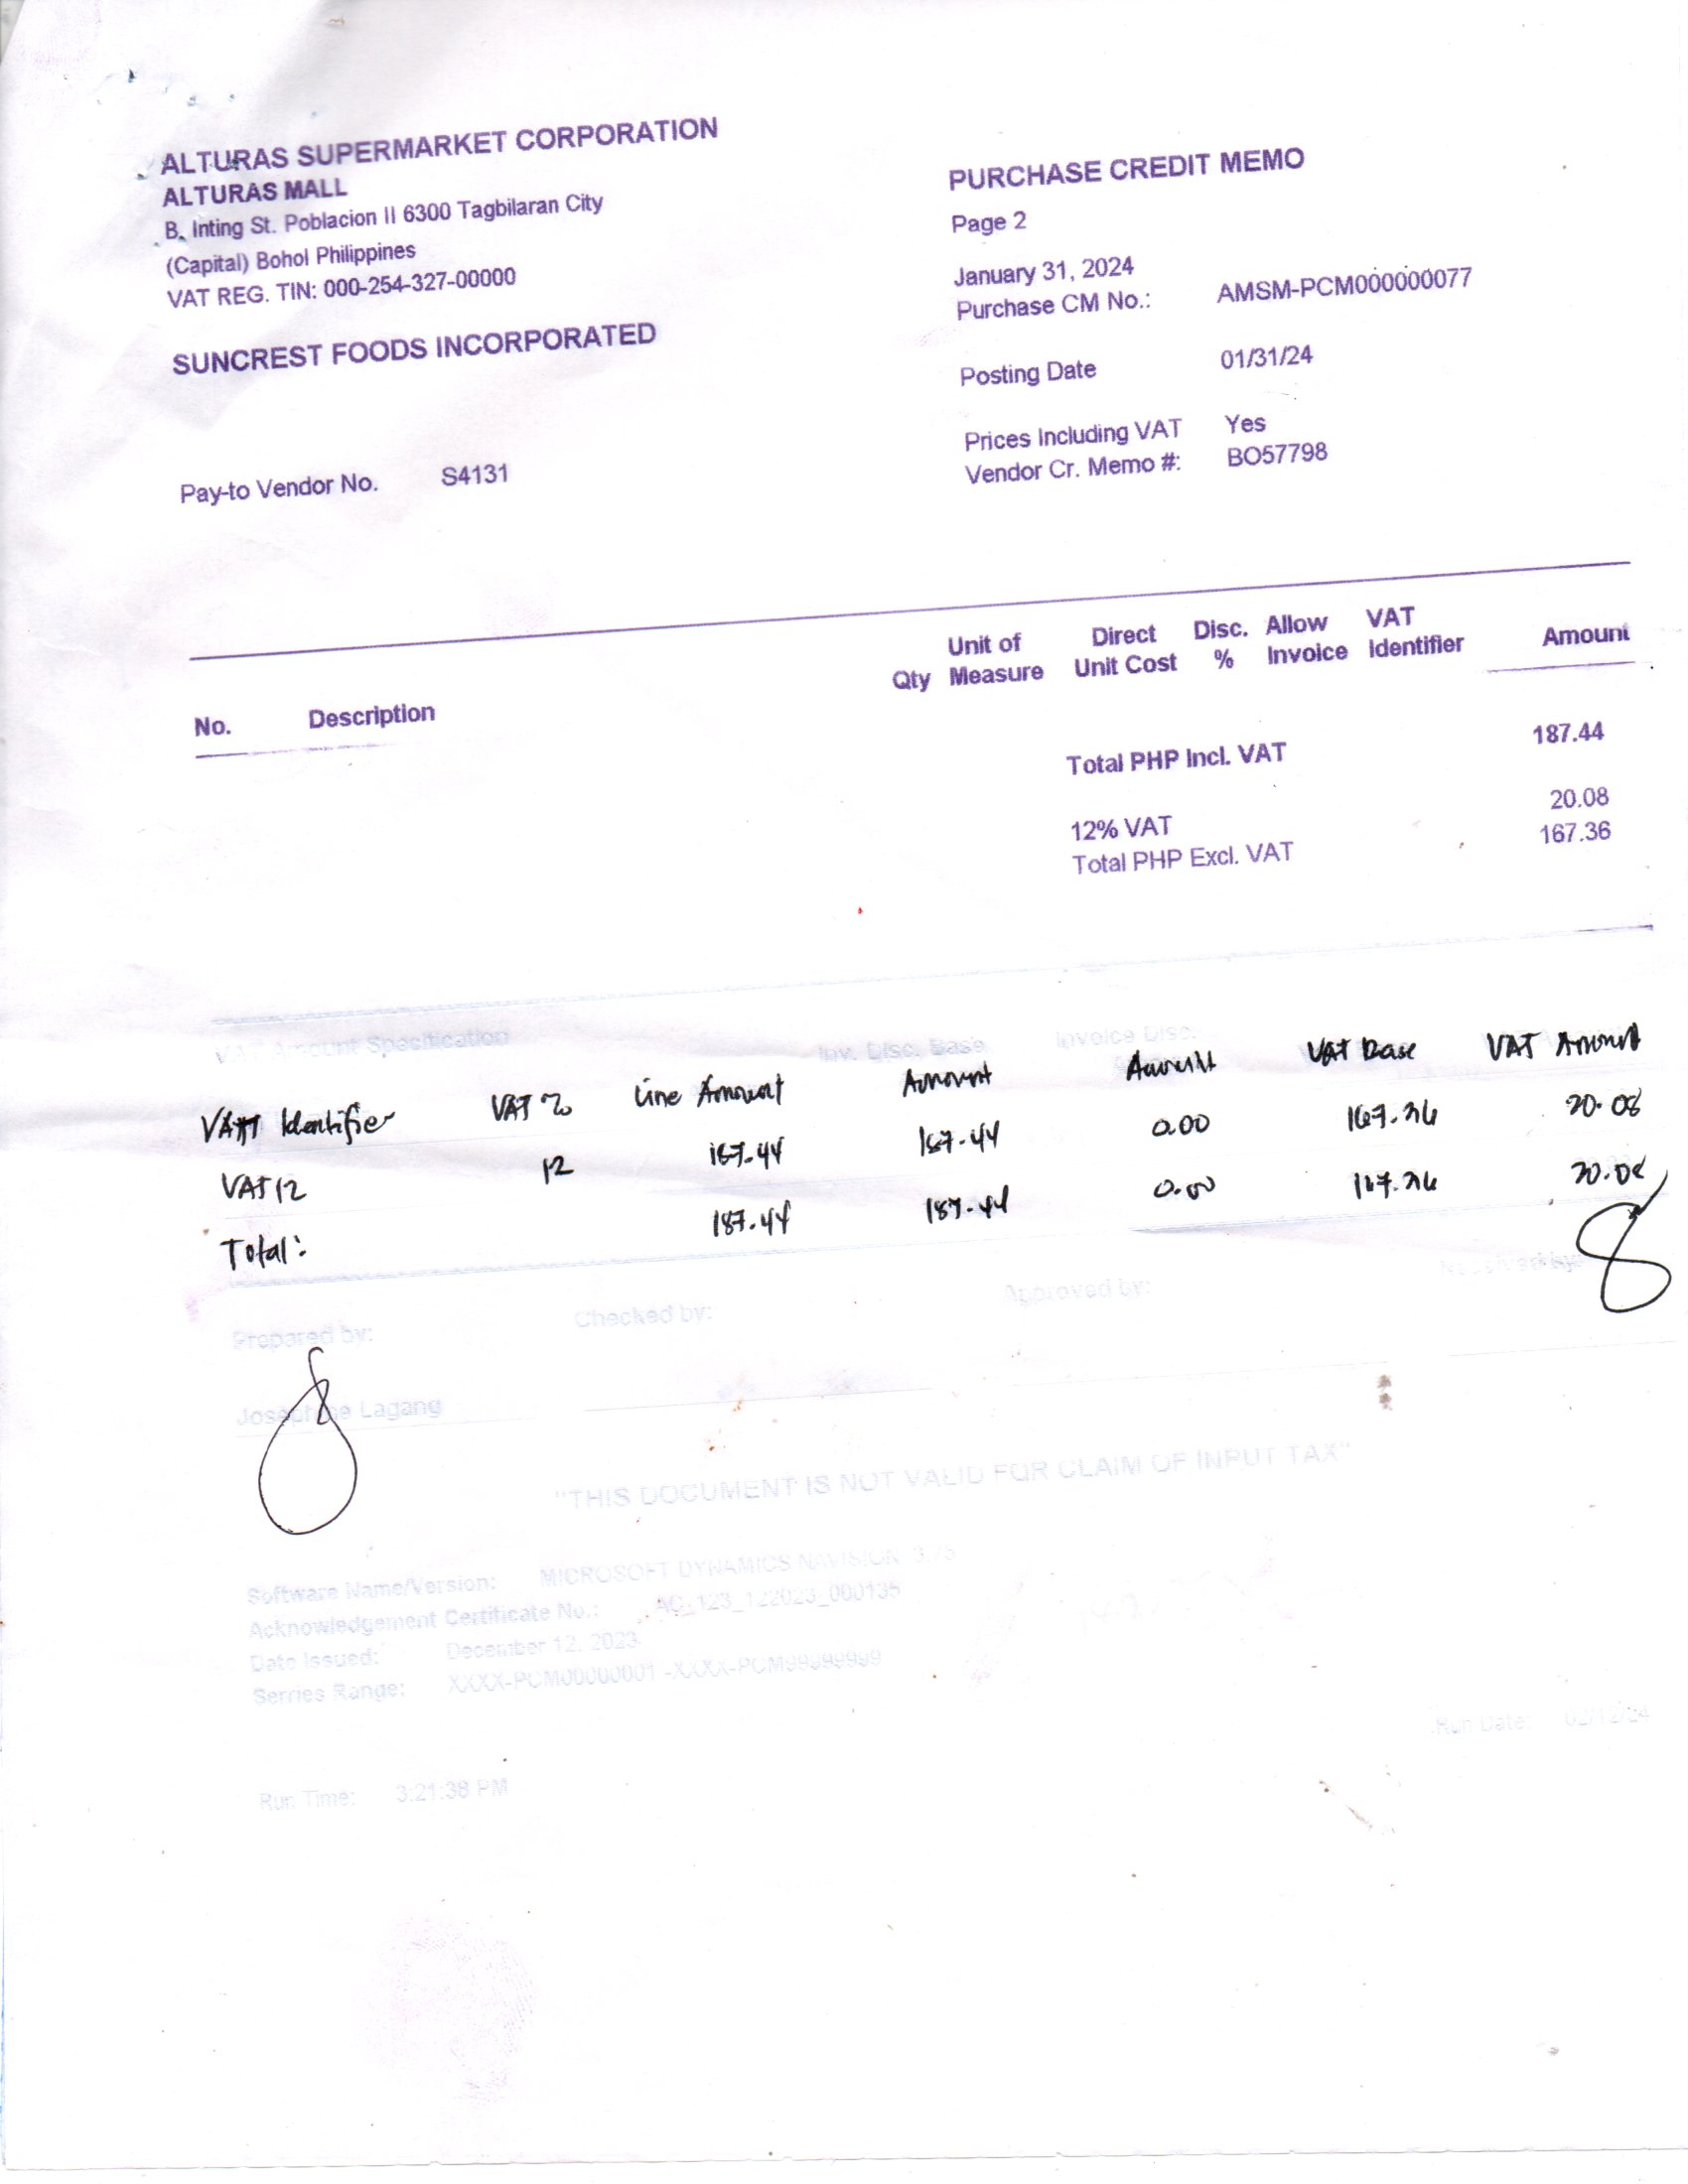 ALTURAS SUPERMARKET CORPORATION
ALTURAS MALL
B. Inting St. Poblacion II 6300 Tagbilaran City
(Capital) Bohol Philippines
VAT REG. TIN: 000-254-327-00000
SUNCREST FOODS INCORPORATED
Pay-to Vendor No. S4131
PURCHASE CREDIT MEMO
Page 2
January 31, 2024
Purchase CM No.: AMSM-PCM000000077
Posting Date 01/31/24
Prices Including VAT Yes
Vendor Cr. Memo #: BO57798
No. Description Qty Unit of Measure Direct Unit Cost Disc. % Allow Invoice VAT Identifier Amount
Total PHP Incl. VAT 187.44
12% VAT 20.08
Total PHP Excl. VAT 167.36
VAT Amount Specification Inv. Disc. Base Invoice Disc.
VAT Identifier VAT % Line Amount Amount Amount VAT Base VAT Amount
VAT 12 12 187.44 187.44 0.00 167.36 20.08
Total: 187.44 187.44 0.00 167.36 20.08
Prepared by: Checked by: Approved by:
Josephine Lagang
"THIS DOCUMENT IS NOT VALID FOR CLAIM OF INPUT TAX"
Software Name/Version: MICROSOFT DYNAMICS NAVISION 3.75
Acknowledgement Certificate No.: AC_123_122023_000135
Date Issued: December 12, 2023
Serries Range: XXXX-PCM00000001 -XXXX-PCM99999999
Run Date: 02/12/24
Run Time: 3:21:38 PM